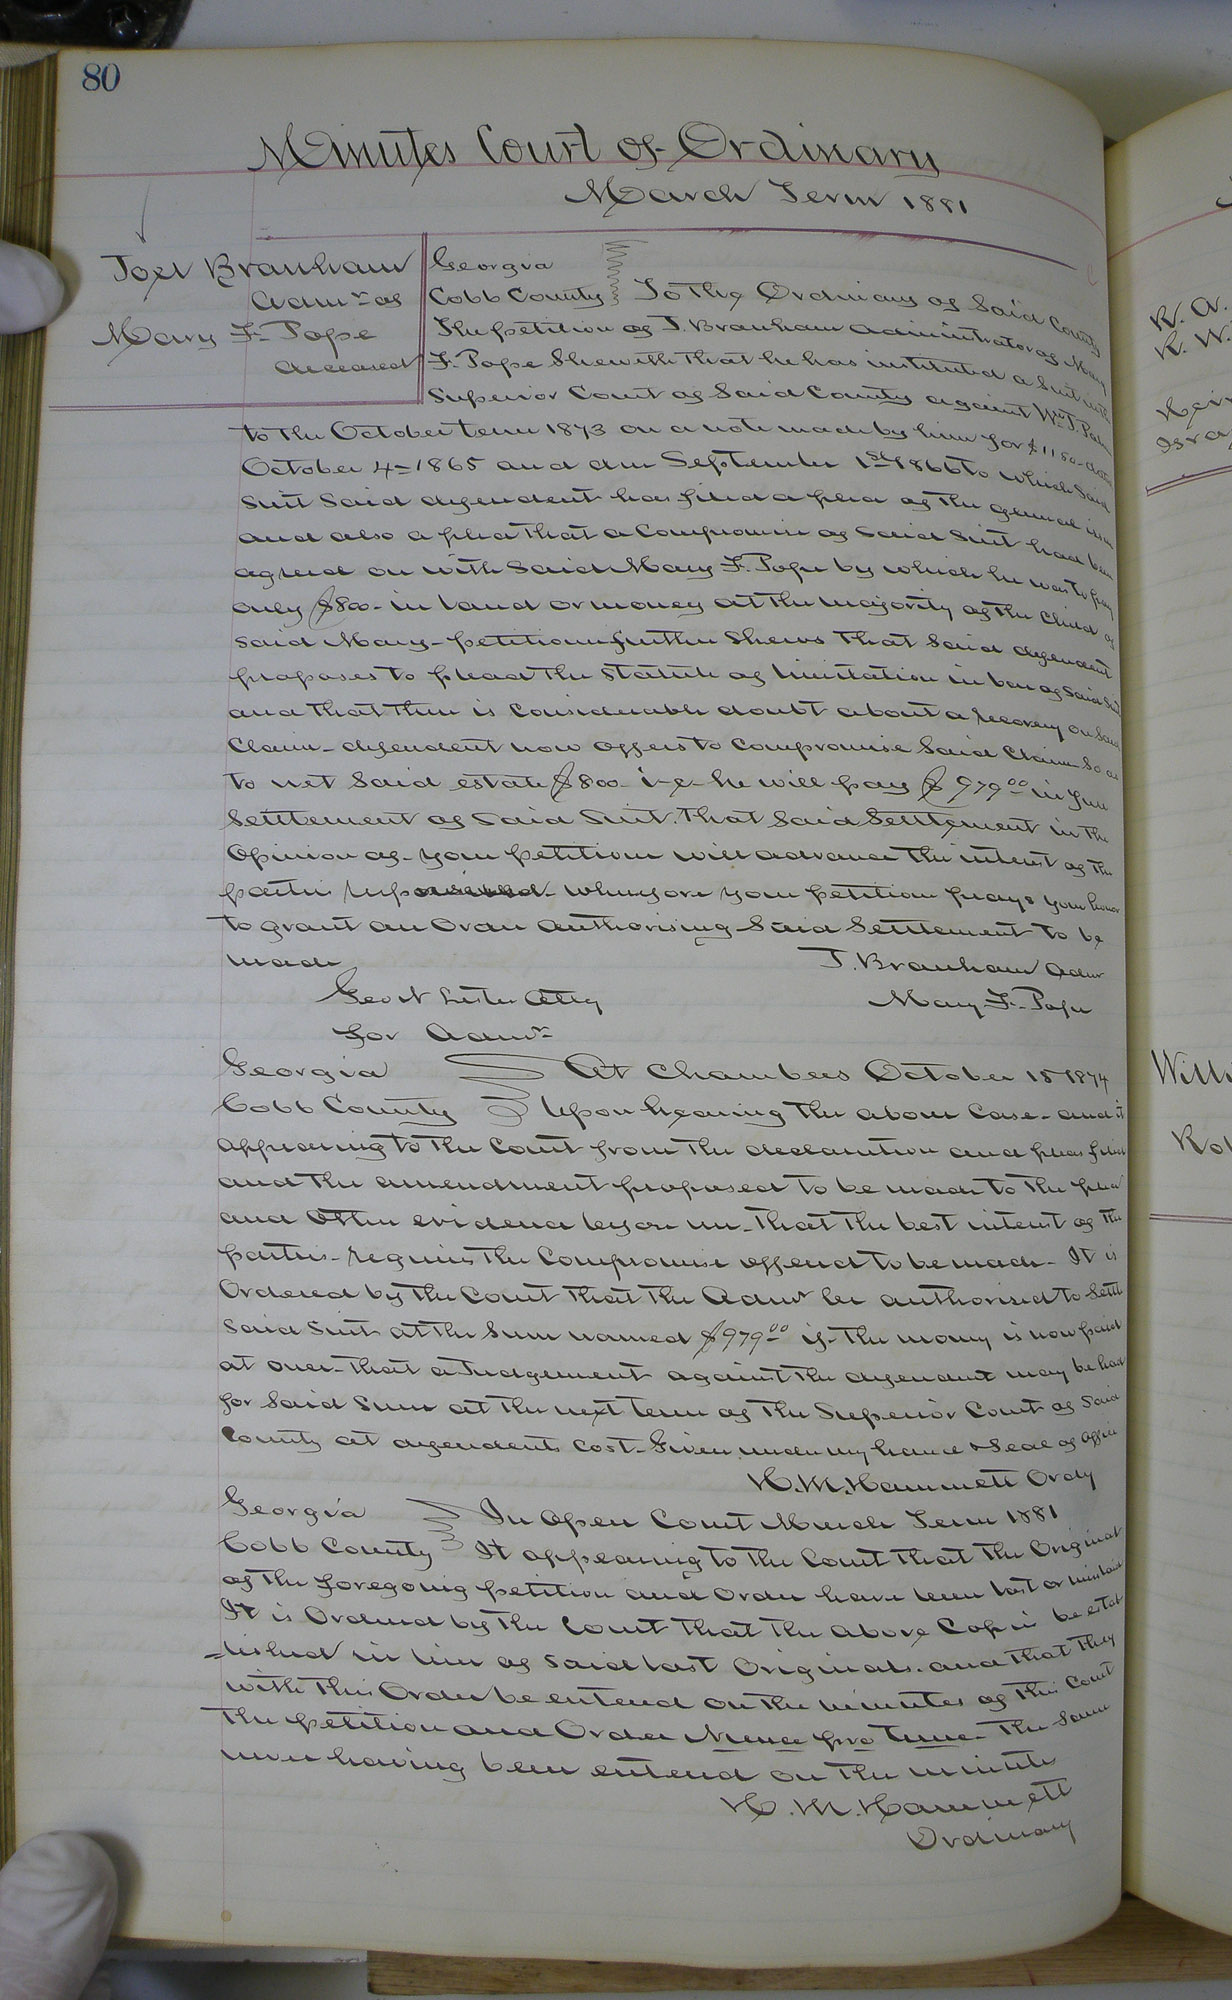 80
Minutes Court of Ordinary
March Term 1881
Joel Branham
Admr of
Mary F. Pope
deceased
Georgia
Cobb County To the Ordinary of Said County
The petition of J. Branham administrator of Mary
F. Pope Sheweth that he has instituted a Suit in the
Superior Court of Said County against Wm J.
to the October term 1873 on a note made by him for $1180- dated
October 4- 1865 and due September 1st 1866 to which Said
Suit Said defendent has filed a plea of the general issue
and also a plea that a Compromise of Said Suit had been
agreed on with Said Mary F. Pope by which he was to pay
only $800- in land or money at the majority of the Child of
Said Mary- petitioner further Shews that Said defendent
proposes to plead the Statute of limitation in bar of Said Suit
and that there is Considerable doubt about a recovery on Said
Claim- defendent now offers to Compromise Said Claim So as
to net Said estate $800- i-e- he will pay $979.00 in full
Settlement of Said Suit. That Said Settlement in the
Opinion of your petitioner will advance the interest of the
parties represented- Wherefore your petitioner prays your honor
to grant an Order authorising Said Settlement to be
made J. Branham Admr
Geo N Lester Atty Mary F. Pope
for Admr
Georgia At Chambers October 15 1874
Cobb County Upon hearing the above Case- and it
appearing to the Court from the declaration and pleas filed
and the amendment proposed to be made to the plea
and other evidence before me- that the best interest of the
parties- requires the Compromise offered to be made- It is
Ordered by the Court that the Admr be authorised to Settle
Said Suit at the Sum named $979.00 if the money is now paid
at once- that a Judgement against the defendant may be had
for Said Sum at the next term of the Superior Court of Said
County at defendents Cost- Given under my hand & Seal of Office
H. M. Hammett Ordy
Georgia In Open Court March Term 1881
Cobb County It appearing to the Court that the Original
of the foregoing petition and Order have been lost or mislaid
It is Ordered by the Court that the above Copies be estab
-lished in lieu of Said lost Originals. and that they
with this Order be entered on the minutes of this Court
the petition and Order Nunc pro tunc- The Same
never having been entered on the minutes
H. M. Hammett
Ordinary
R. A.
R. W.
Rob